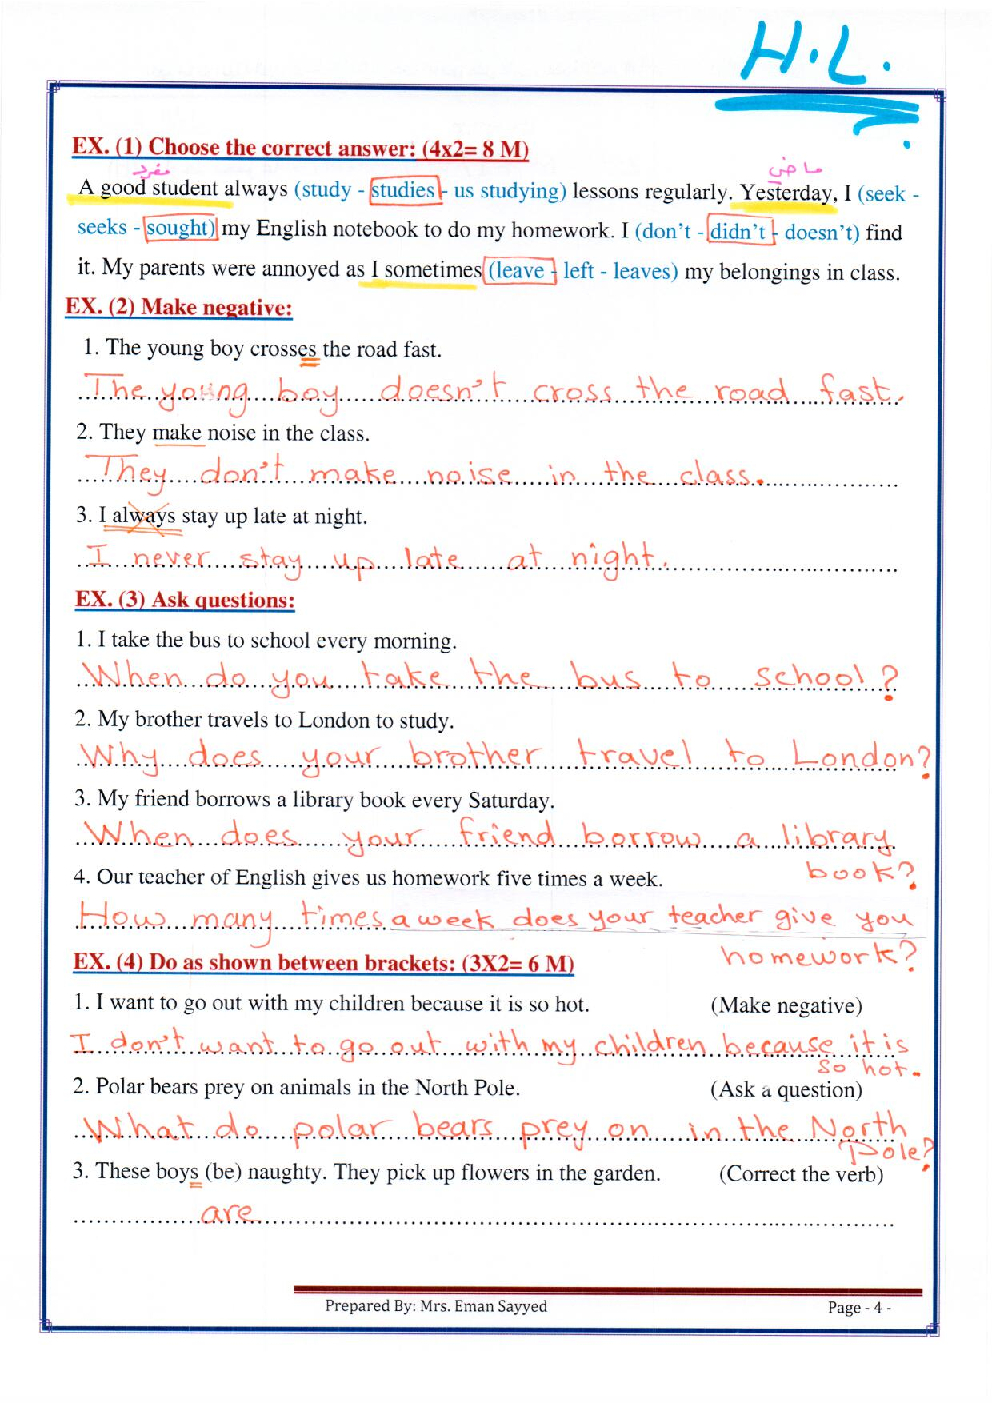 H.L.
EX. (1) Choose the correct answer: (4x2= 8 M)
مفرد ماضى
A good student always (study - studies - us studying) lessons regularly. Yesterday, I (seek -
seeks - sought) my English notebook to do my homework. I (don't - didn't - doesn't) find
it. My parents were annoyed as I sometimes (leave - left - leaves) my belongings in class.
EX. (2) Make negative:
1. The young boy crosses the road fast.
The young boy doesn't cross the road fast.
2. They make noise in the class.
They don't make noise in the class.
3. I always stay up late at night.
I never stay up late at night.
EX. (3) Ask questions:
1. I take the bus to school every morning.
When do you take the bus to school?
2. My brother travels to London to study.
Why does your brother travel to London?
3. My friend borrows a library book every Saturday.
When does your friend borrow a library
book?
4. Our teacher of English gives us homework five times a week.
How many times a week does your teacher give you
homework?
EX. (4) Do as shown between brackets: (3X2= 6 M)
1. I want to go out with my children because it is so hot. (Make negative)
I don't want to go out with my children because it is
so hot.
2. Polar bears prey on animals in the North Pole. (Ask a question)
What do polar bears prey on in the North
Pole?
3. These boys (be) naughty. They pick up flowers in the garden. (Correct the verb)
are
Prepared By: Mrs. Eman Sayyed Page - 4 -